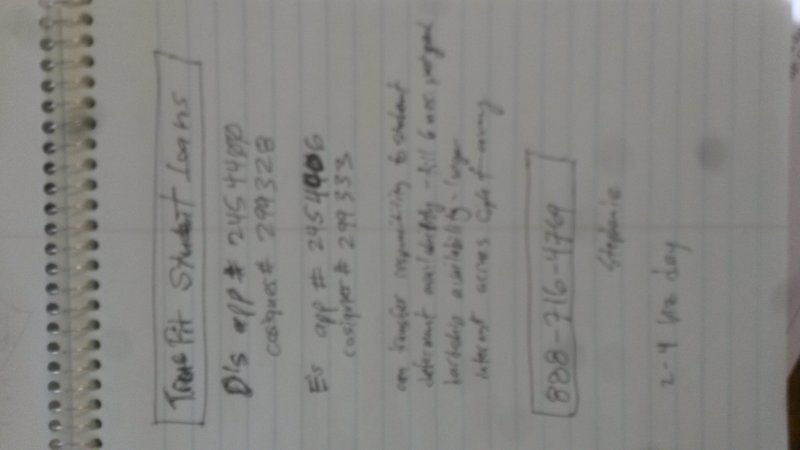 True Fit Student Loans
D's app # 2454400
cosigner # 299328
E's app # 2454006
cosigner # 299333
can transfer responsibility to student
deferment availability - till 6 mos post grad
hardship availability - longer
interest accrues
888-716-4769
Stephanie
2-4 hrs day